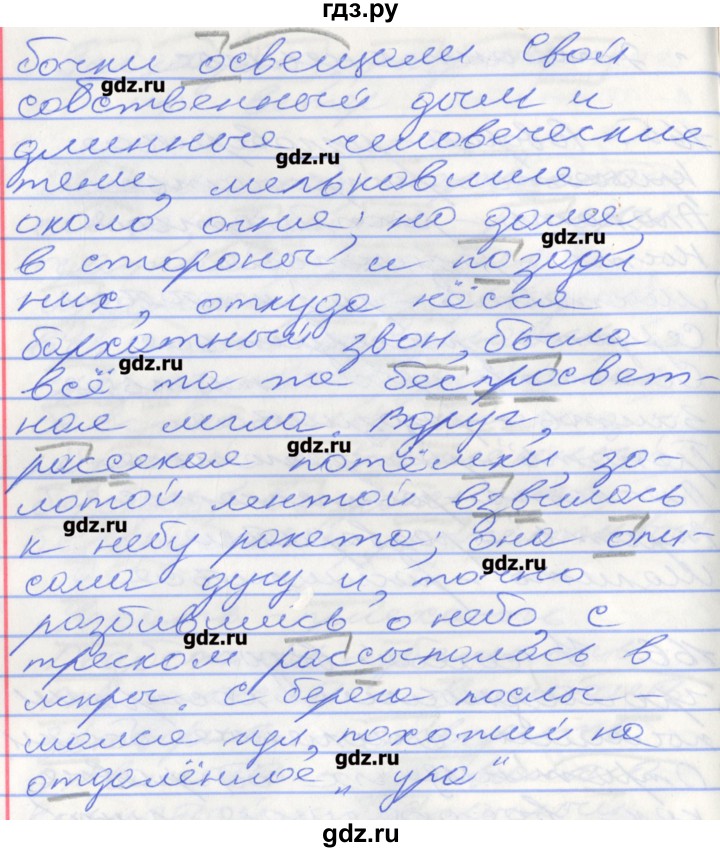 гдз.ру
бочки освещали свой
gdz.ru
собственный дым и
длинные человеческие
gdz.ru
тени, мелькавшие
около огня; но далее,
gdz.ru
в стороны и позади
них, откуда нёсся
бархатный звон, была
gdz.ru
всё та же беспросвет-
ная мгла. Вдруг,
gdz.ru
рассекая потёмки, зо-
лотой лентой взвилась
gdz.ru
к небу ракета; она опи-
gdz.ru
сала дугу и, точно
разбившись о небо, с
gdz.ru
треском рассыпалась в
искры. С берега послы-
шался гул, похожий на
gdz.ru
отдалённое „ура"
gdz.ru